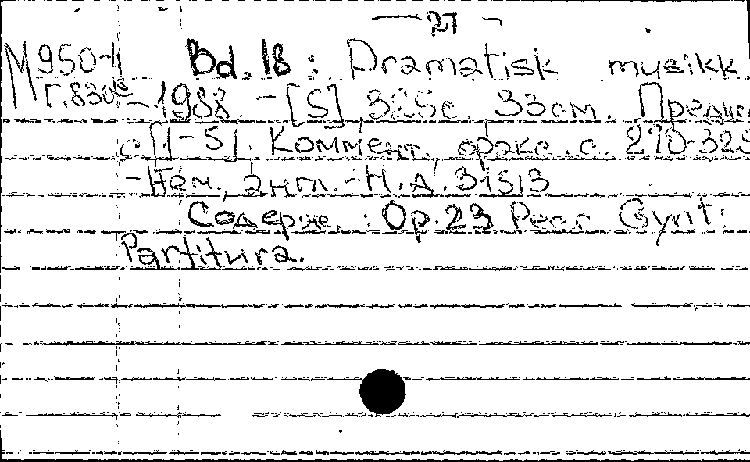 — 27 —
M950-1 Bd. 18 : Dramatisk musikk.
Г.830е -1988 -[5], 325с. 33см. Предис
с [1-5]. Коммент., факс. с. 290-325
-Нем., англ. -Н.Д. 31513
Содерж. : Op. 23 Peer Gynt:
Partitura.